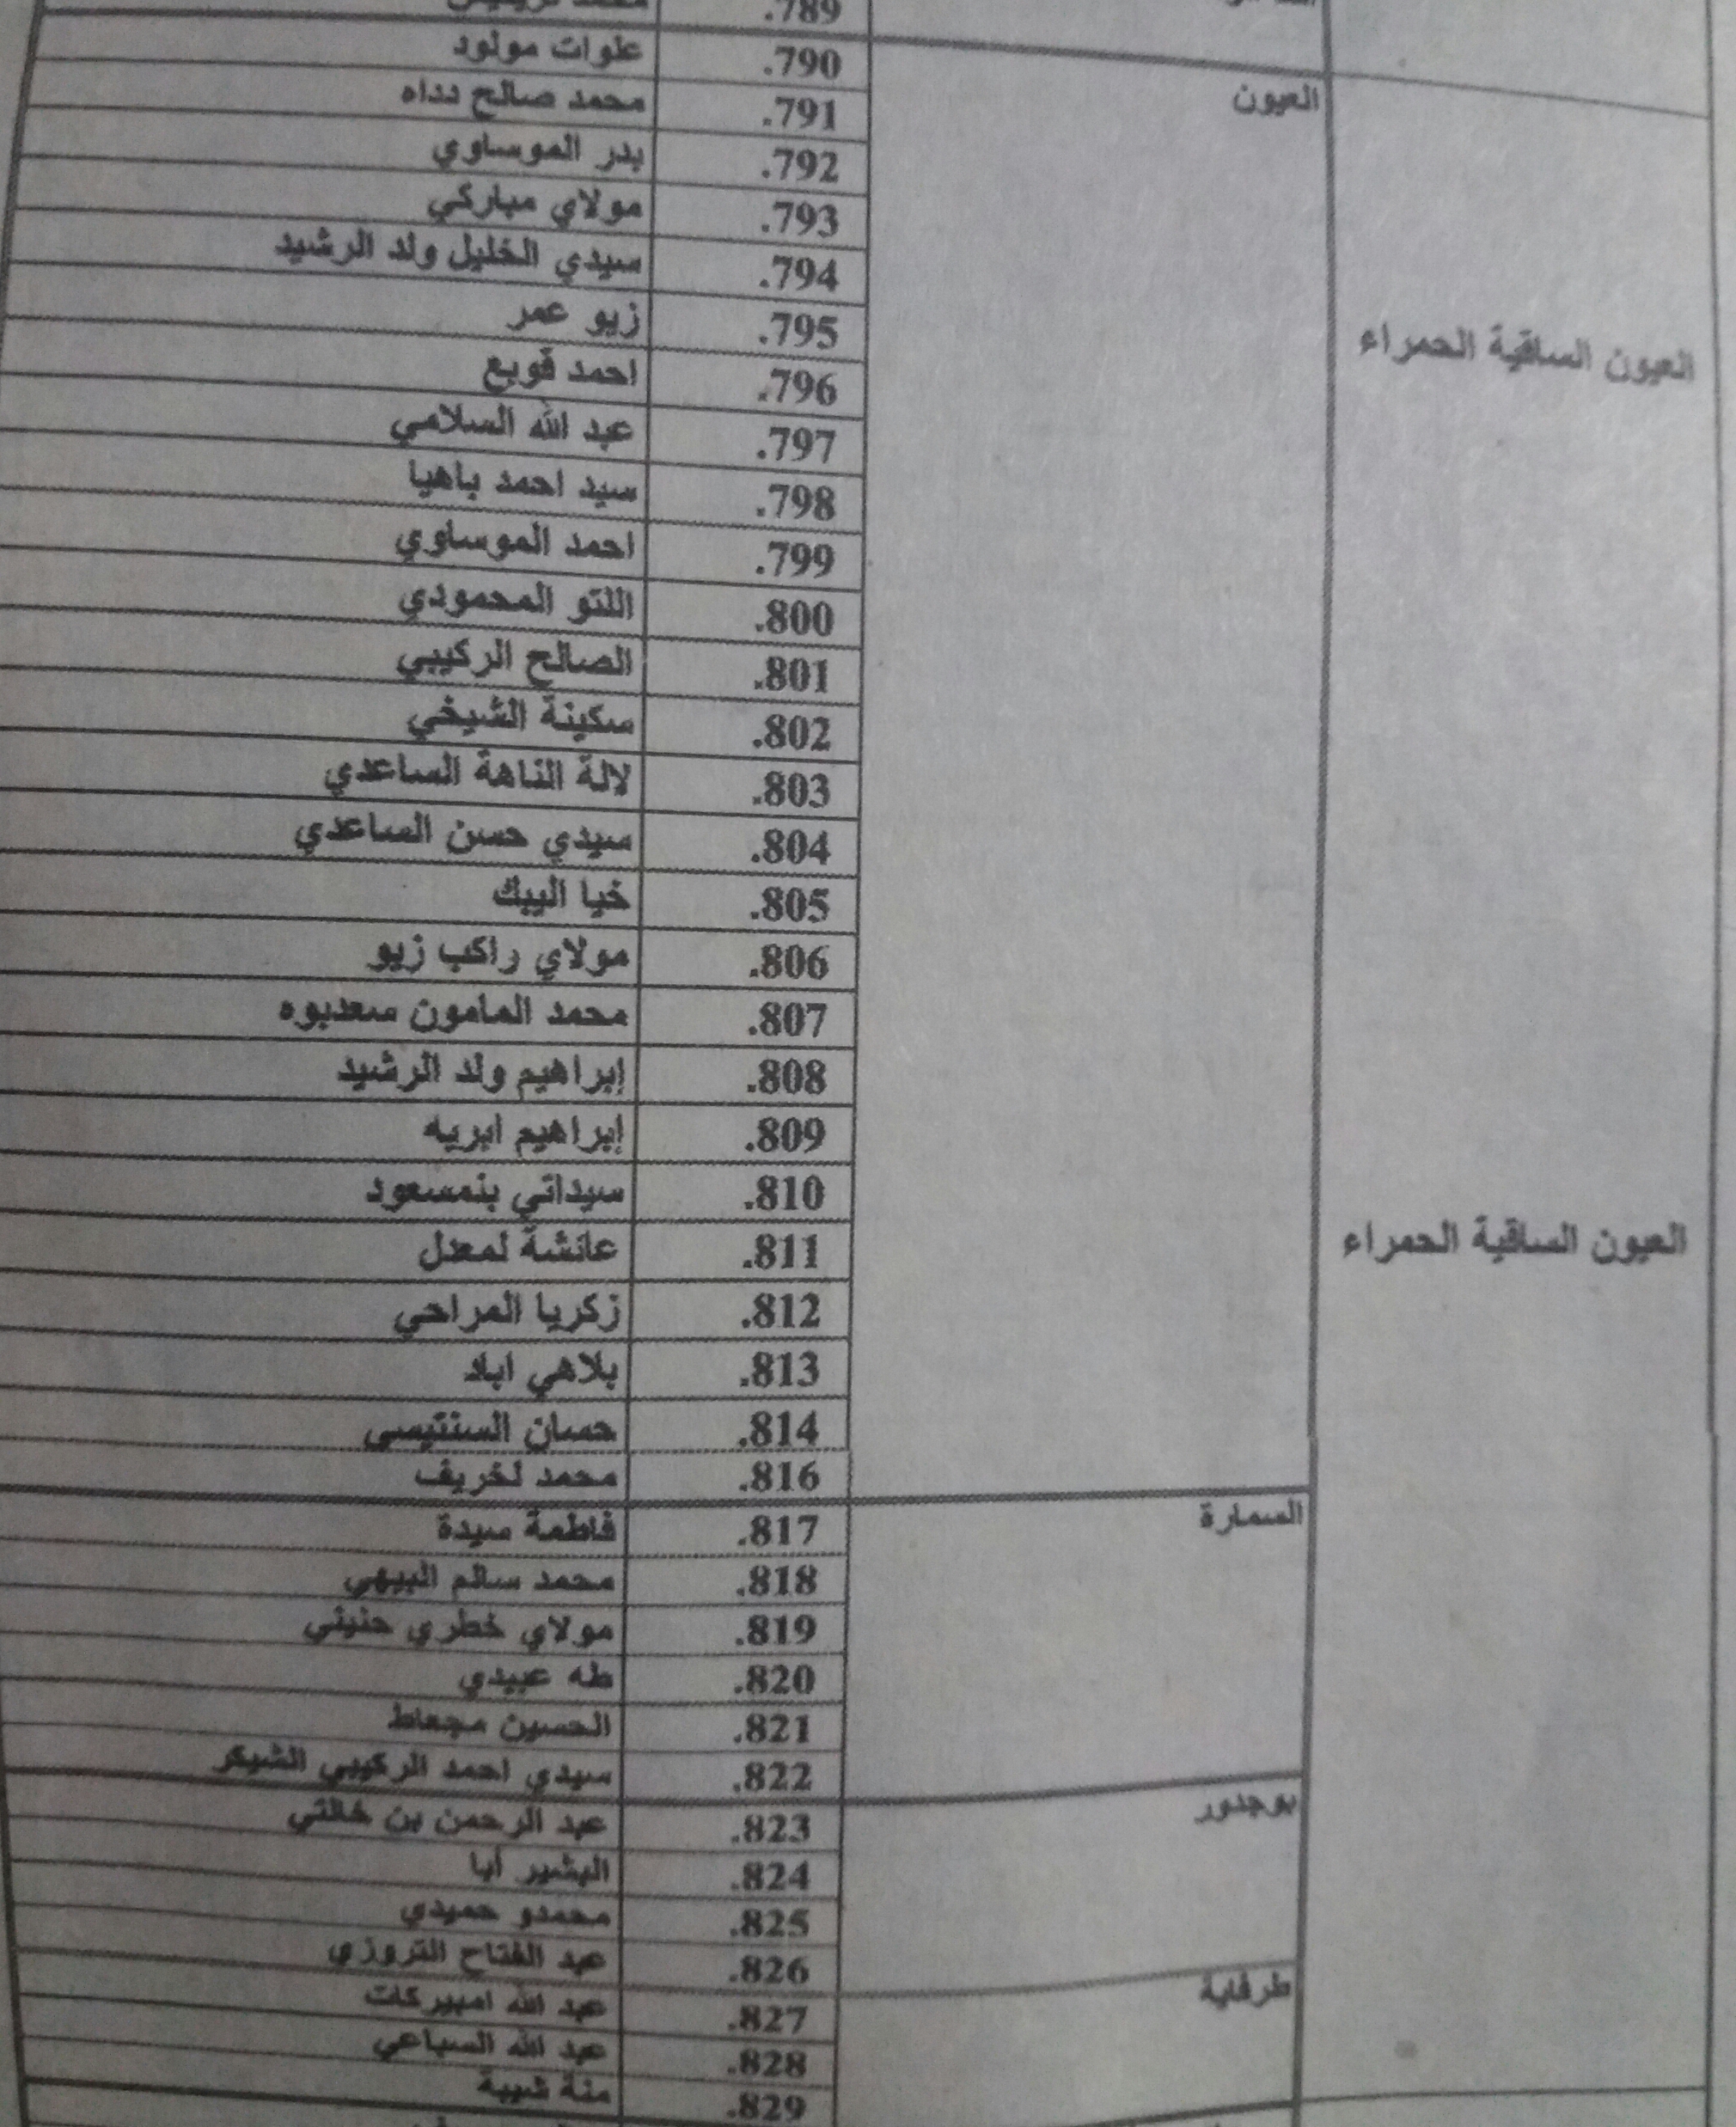 .789
العيون
العيون الساقية الحمراء
.790 علوات مولود
.791 محمد صالح دداه
.792 بدر الموساوي
.793 مولاي مباركي
.794 سيدي الخليل ولد الرشيد
.795 زيو عمر
.796 احمد قويع
.797 عبد الله السلامي
.798 سيد احمد باهيا
.799 احمد الموساوي
.800 اللتو المحمودي
.801 الصالح الركيبي
.802 سكينة الشيخي
.803 لالة الناهة الساعدي
.804 سيدي حسن الساعدي
.805 خيا البيك
.806 مولاي راكب زيو
.807 محمد المامون سعدبوه
.808 إبراهيم ولد الرشيد
.809 إبراهيم ابريه
العيون الساقية الحمراء
.810 سيداتي بنمسعود
.811 عائشة لمعدل
.812 زكريا المراحي
.813 بلاهي اباد
.814 حسان السنتيسي
.816 محمد لخريف
السمارة
.817 فاطمة سيدة
.818 محمد سالم البيهي
.819 مولاي خطري حنيني
.820 طه عبيدي
.821 الحسين مجعاط
.822 سيدي احمد الركيبي الشيكر
بوجدور
.823 عبد الرحمن بن خالتي
.824 البشير أبا
.825 محمدو حميدي
.826 عبد الفتاح التروزي
طرفاية
.827 عبد الله امبيركات
.828 عبد الله السباعي
.829 منة شيبة